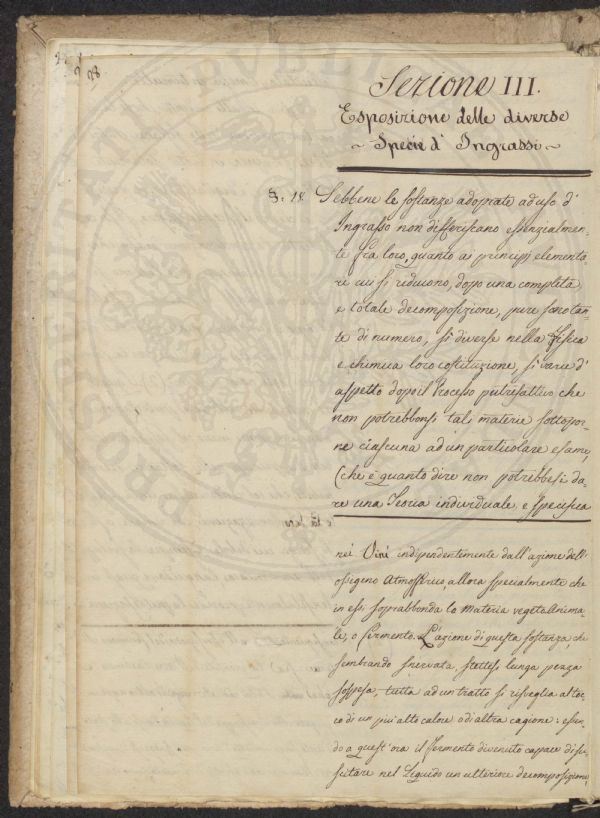 28
Sezione III.
Esposizione delle diverse
~ Specie d' Ingrassi ~
§. 18. Sebbene le sostanze adoprate ad uso d'
Ingrasso non differiscano essenzialmen-
te fra loro, quanto ai principj elementa-
ri cui si riducono, dopo una completa
e totale decomposizione, pure sono tan-
te di numero, sì diverse nella fisica
e chimica loro costituzione, sì varie d'
aspetto dopo il Processo putrefattivo che
non potrebbonsi tali materie sottopor-
ne ciascuna ad un particolare esame,
(che è quanto dire non potrebbesi da-
re una Teoria individuale, e specifica
nei Vini indipendentemente dall'azione dell'
ossigeno Atmosferico, allora specialmente che
in essi soprabbonda la materia vegeto Anima-
le, o fermento. L'azione di questa sostanza, che
sembrando snervata, stettesi lunga pezza
sospesa, tutta ad un tratto si risveglia al toc-
co di un più alto calore o di altra cagione: essen-
do a quest'ora il fermento divenuto capace di su-
scitare nel Liquido un ulteriore decomposizione,